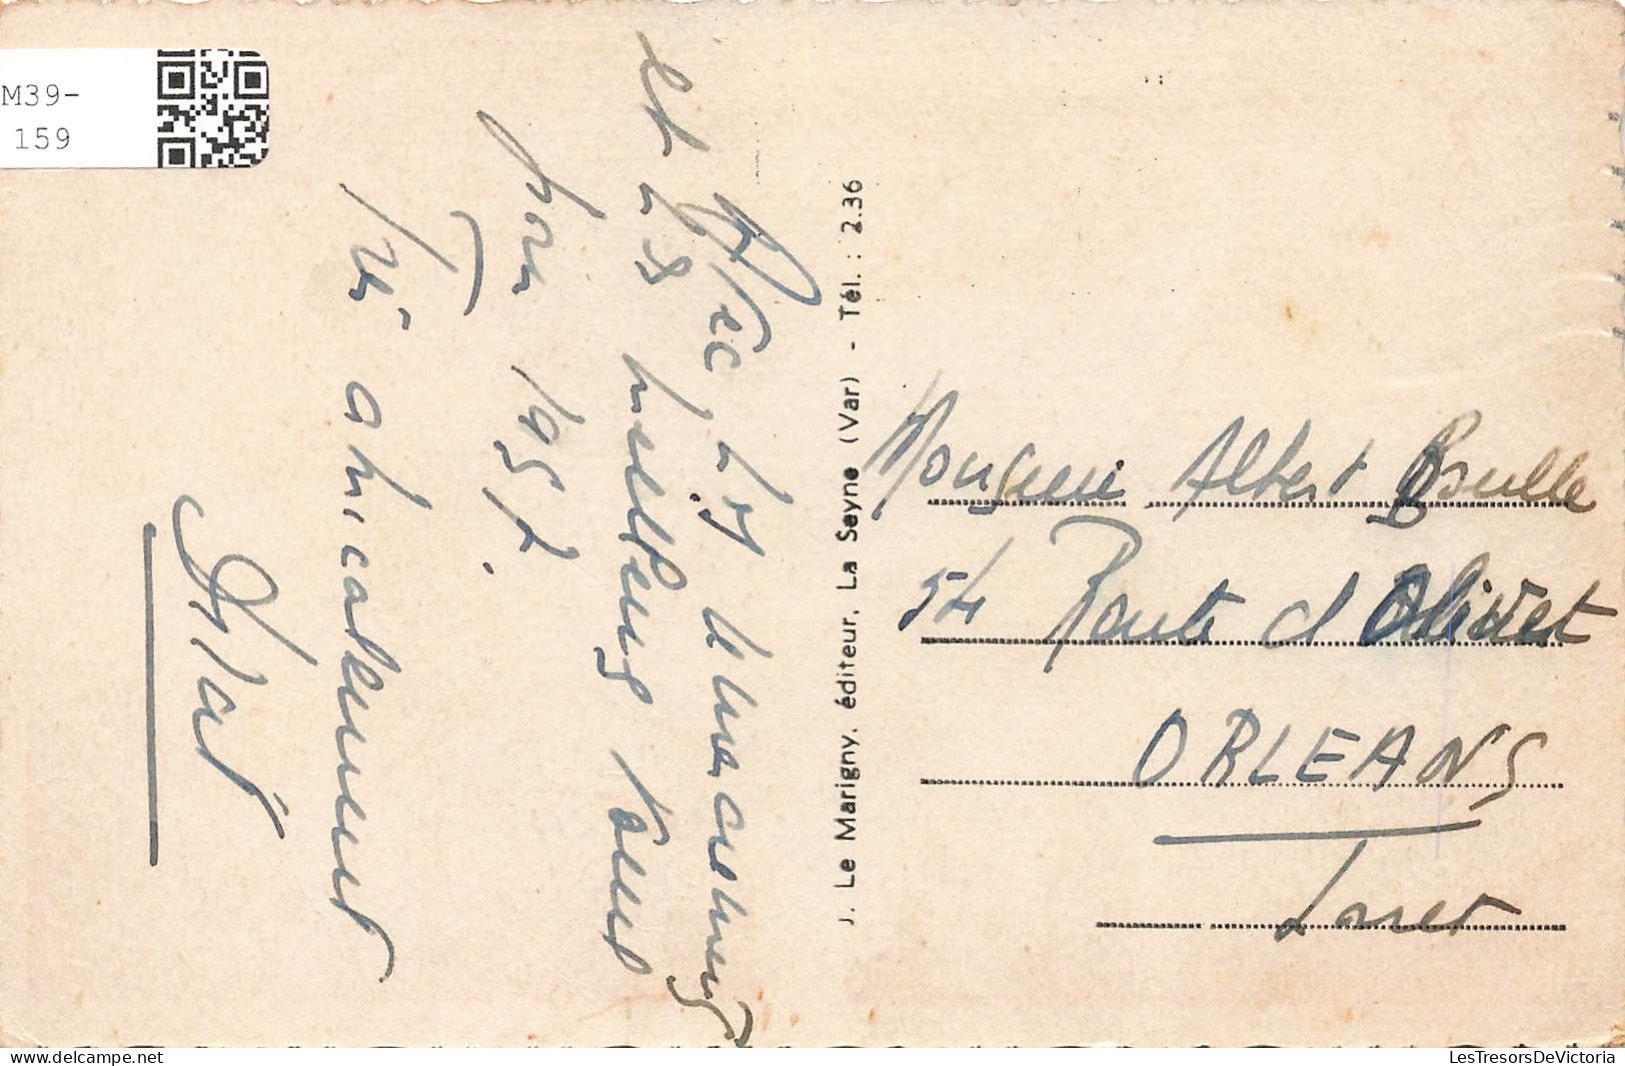 M39-
159
Avec les remerciements
et les meilleurs vœux
pour 1957.
Très amicalement
J. Le Marigny, éditeur, La Seyne (Var) - Tél. : 2.36
Monsieur Albert Brulle
54 Route d Olivet
ORLEANS
Loiret
LesTresorsDeVictoria